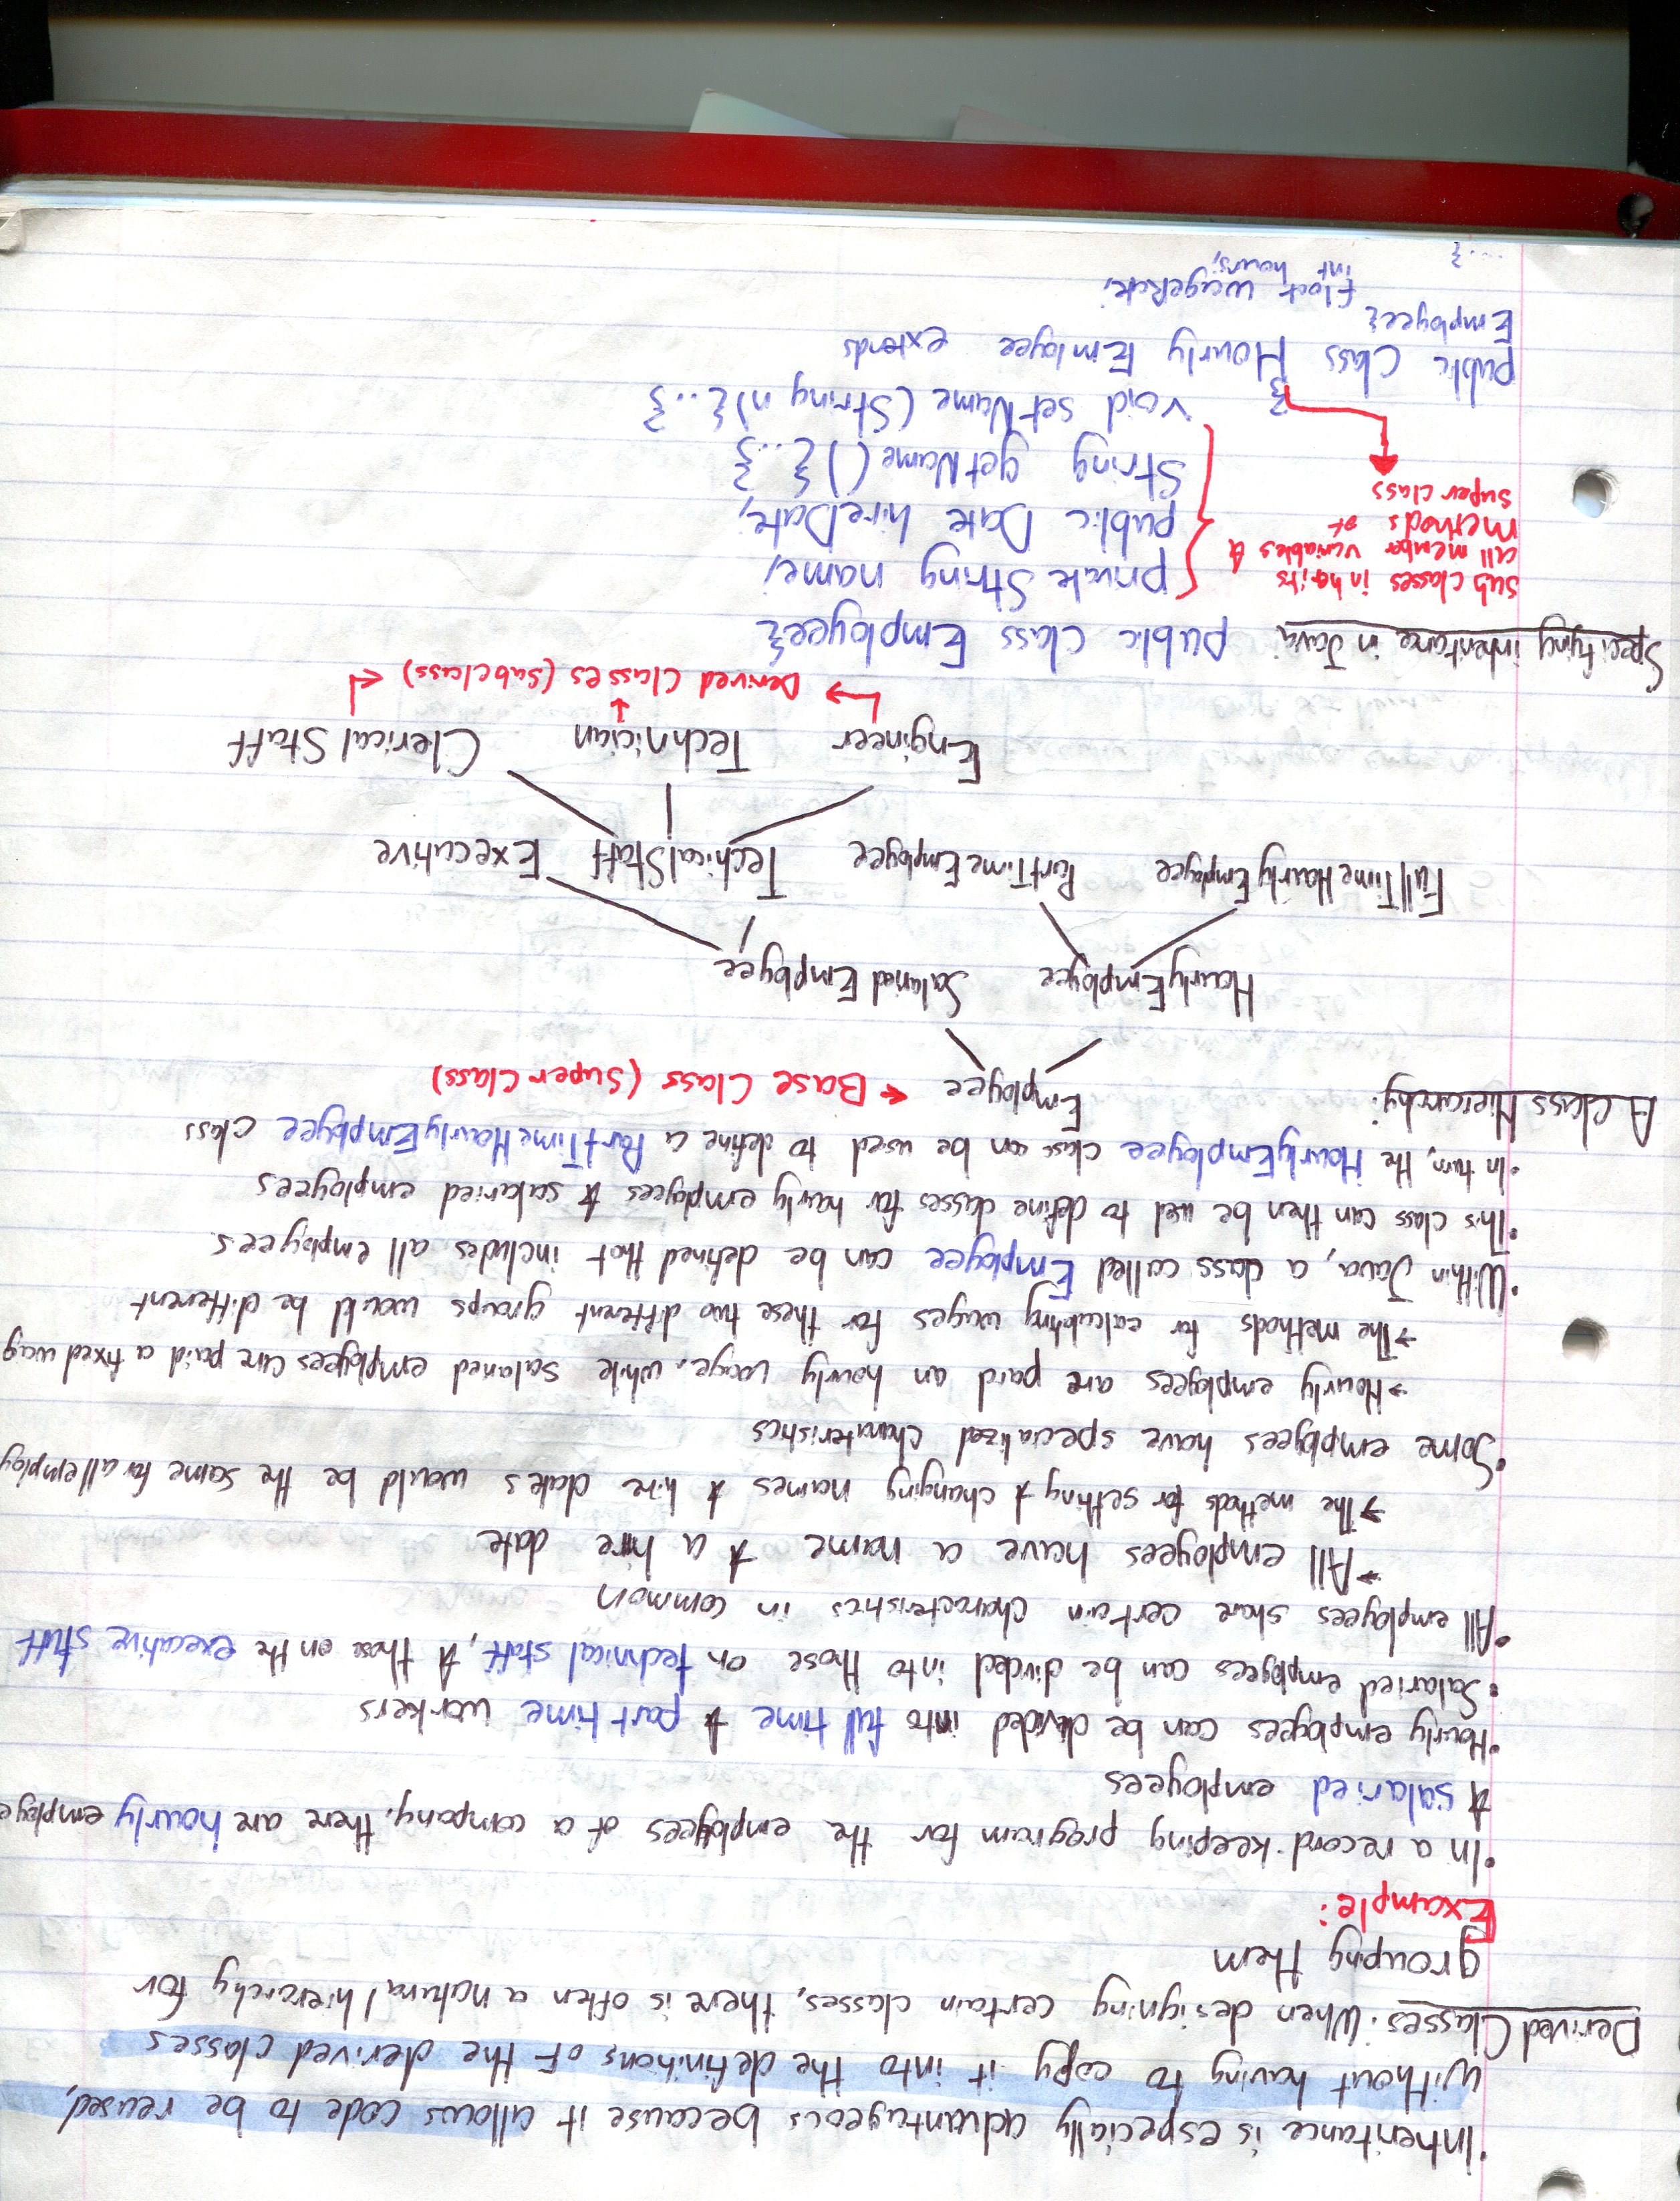 •Inheritance is especially advantageous because it allows code to be reused,
without having to copy it into the definitions of the derived classes
Derived Classes: When designing certain classes, there is often a natural hierarchy for
grouping them
Example:
•In a record-keeping program for the employees of a company, there are hourly employe
& salaried employees
•Hourly employees can be divided into full time & part time workers
•Salaried employees can be divided into those on technical staff, & those on the executive staff
•All employees share certain characteristics in common
→All employees have a name & a hire date
→The methods for setting & changing names & hire dates would be the same for all employ
•Some employees have specialized characteristics
→Hourly employees are paid an hourly wage, while salaried employees are paid a fixed wag
→The methods for calculating wages for these two different groups would be different
•Within Java, a class called Employee can be defined that includes all employees.
•This class can then be used to define classes for hourly employees & salaried employees
•In turn, the HourlyEmployee class can be used to define a PartTimeHourlyEmployee class
A Class Hierarchy:
Employee ← Base Class (Super Class)
HourlyEmployee SalariedEmployee
FullTimeHourlyEmployee PartTimeEmployee TechicalStaff Executive
Engineer Technician ClericalStaff
→ Derived Classes (Subclass) ←
Specifying inheritance in Java: public class Employee{
private String name;
public Date hireDate;
String getName(){...}
void setName(String n){...}
}
sub classes inhairts
all member variables &
methods of
super class
public Class Hourly Emloyee extends
Employee{
float wageRate;
int hours;
...}